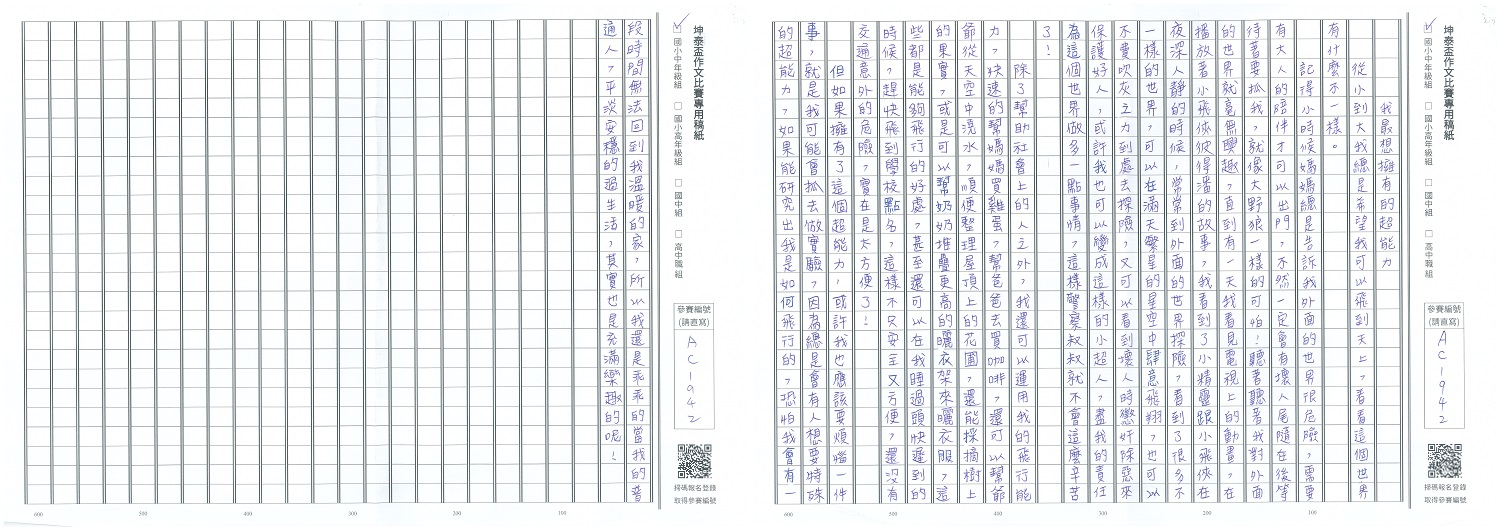 坤泰盃作文比賽專用稿紙
✓ 國小中年級組 □ 國小高年級組 □ 國中組 □ 高中職組
參賽編號
(請直寫)
AC1942
掃碼報名登錄
取得參賽編號
我最想擁有的超能力
從小到大我總是希望我可以飛到天上,看看這個世界
有什麼不一樣。
記得小時候媽媽總是告訴我外面的世界很危險,需要
有大人的陪伴才可以出門,不然一定會有壞人尾隨在後等
待著要抓我,就像大野狼一樣的可怕!聽著聽著我對外面
的世界就毫無興趣,直到有一天我看見電視上的動畫,在
播放著小飛俠彼得潘的故事,我看到了小精靈跟小飛俠在
夜深人靜的時候,常常到外面的世界探險,看到了很多不
一樣的世界,可以在滿天繁星的星空中肆意飛翔,也可以
不費吹灰之力到處去探險,又可以看到壞人時懲奸除惡來
保護好人,或許我也可以變成這樣的小超人,盡我的責任
為這個世界做多一點事情,這樣警察叔叔就不會這麼辛苦
了!
除了幫助社會上的人之外,我還可以運用我的飛行能
力,快速的幫媽媽買雞蛋,幫爸爸去買咖啡,還可以幫爺
爺從天空中澆水,順便整理屋頂上的花園,還能採摘樹上
的果實,或是可以幫奶奶堆疊更高的曬衣架來曬衣服,這
些都是能夠飛行的好處,甚至還可以在我睡過頭快遲到的
時候,趕快飛到學校點名,這樣不只安全又方便,還沒有
交通意外的危險,實在是太方便了!
但如果擁有了這個超能力,或許我也應該要煩惱一件
事,就是我可能會抓去做實驗,因為總是會有人想要特殊
的超能力,如果能研究出我是如何飛行的,恐怕我會有一
100
200
300
400
500
600
坤泰盃作文比賽專用稿紙
✓ 國小中年級組 □ 國小高年級組 □ 國中組 □ 高中職組
參賽編號
(請直寫)
AC1942
掃碼報名登錄
取得參賽編號
段時間無法回到我溫暖的家,所以我還是乖乖的當我的普
通人,平淡安穩的過生活,其實也是充滿樂趣的呢!
100
200
300
400
500
600